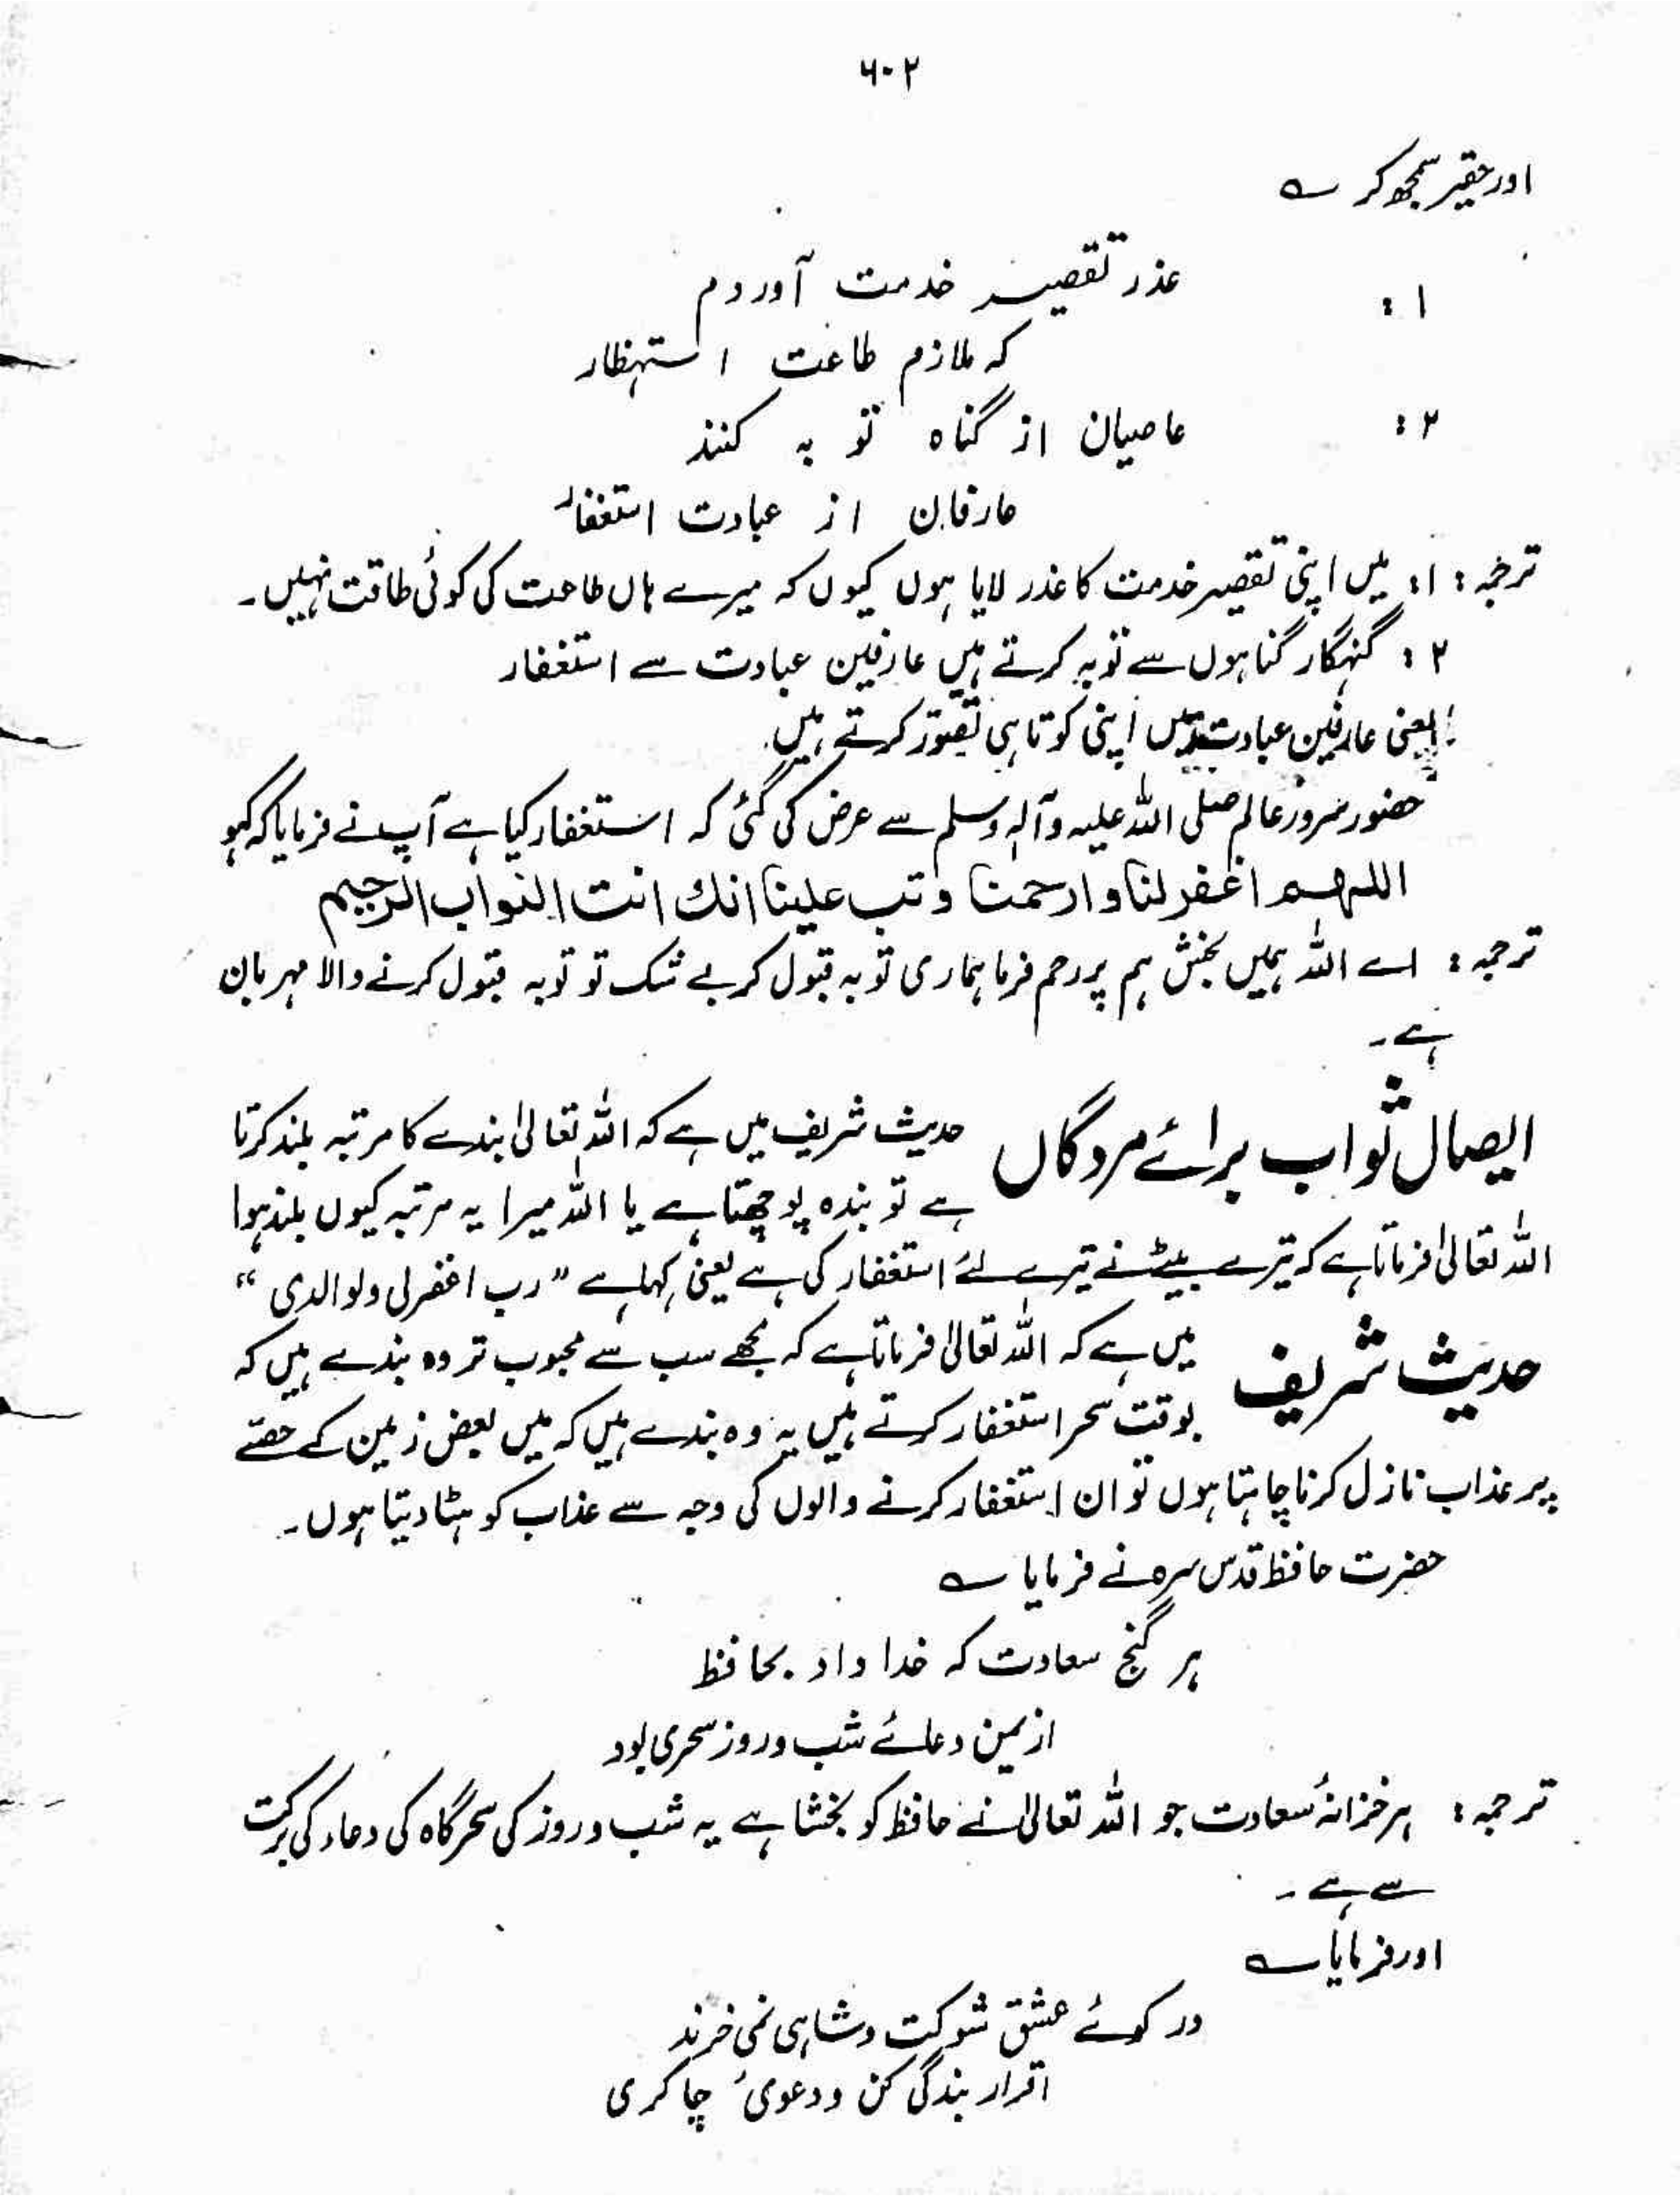 ۶۰۲
اور حقیر سمجھ کر ؎
۱ : عذر تقصیر خدمت آوردم
کہ ملازم طاعت استہظار
۲ : عاصیان از گناہ توبہ کنند
عارفان از عبادت استغفار
ترجمہ : ۱: میں اپنی تقصیر خدمت کا عذر لایا ہوں کیوں کہ میرے ہاں طاعت کی کوئی طاقت نہیں۔
۲ : گنہگار گناہوں سے توبہ کرتے ہیں عارفین عبادت سے استغفار
یعنی عارفین عبادت میں اپنی کوتاہی تصوّر کرتے ہیں۔
حضور سرور عالم صلی اللہ علیہ وآلہٖ وسلم سے عرض کی گئی کہ استغفار کیا ہے آپ نے فرمایا کہ کہو
اللہم اغفرلنا وارحمنا وتب علینا انك انت التواب الرحیم
ترجمہ : اے اللہ ہمیں بخش ہم پر رحم فرما ہماری توبہ قبول کر بے شک تو توبہ قبول کرنے والا مہربان
ہے۔
ایصال ثواب برائے مردگاں حدیث شریف میں ہے کہ اللہ تعالیٰ بندے کا مرتبہ بلند کرتا
ہے تو بندہ پوچھتا ہے یا اللہ میرا یہ مرتبہ کیوں بلند ہوا
اللہ تعالیٰ فرماتا ہے کہ تیرے بیٹے نے تیرے لئے استغفار کی ہے یعنی کہا ہے "رب اغفرلی ولوالدی"
حدیث شریف میں ہے کہ اللہ تعالیٰ فرماتا ہے کہ مجھے سب سے محبوب تر وہ بندے ہیں کہ
بوقت سحر استغفار کرتے ہیں یہ وہ بندے ہیں کہ میں بعض زمین کے حصّے
پر عذاب نازل کرنا چاہتا ہوں تو ان استغفار کرنے والوں کی وجہ سے عذاب کو ہٹا دیتا ہوں۔
حضرت حافظ قدس سرہ نے فرمایا ؎
ہر گنج سعادت کہ خدا داد بحافظ
از یمن دعائے شب و روز سحری بود
ترجمہ : ہر خزانۂ سعادت جو اللہ تعالیٰ نے حافظ کو بخشا ہے یہ شب و روز کی سحر گاہ کی دعاء کی برکت
سے ہے۔
اور فرمایا ؎
در کوئے عشق شوکت و شاہی نمی خرند
اقرار بندگی کن و دعویٔ چاکری